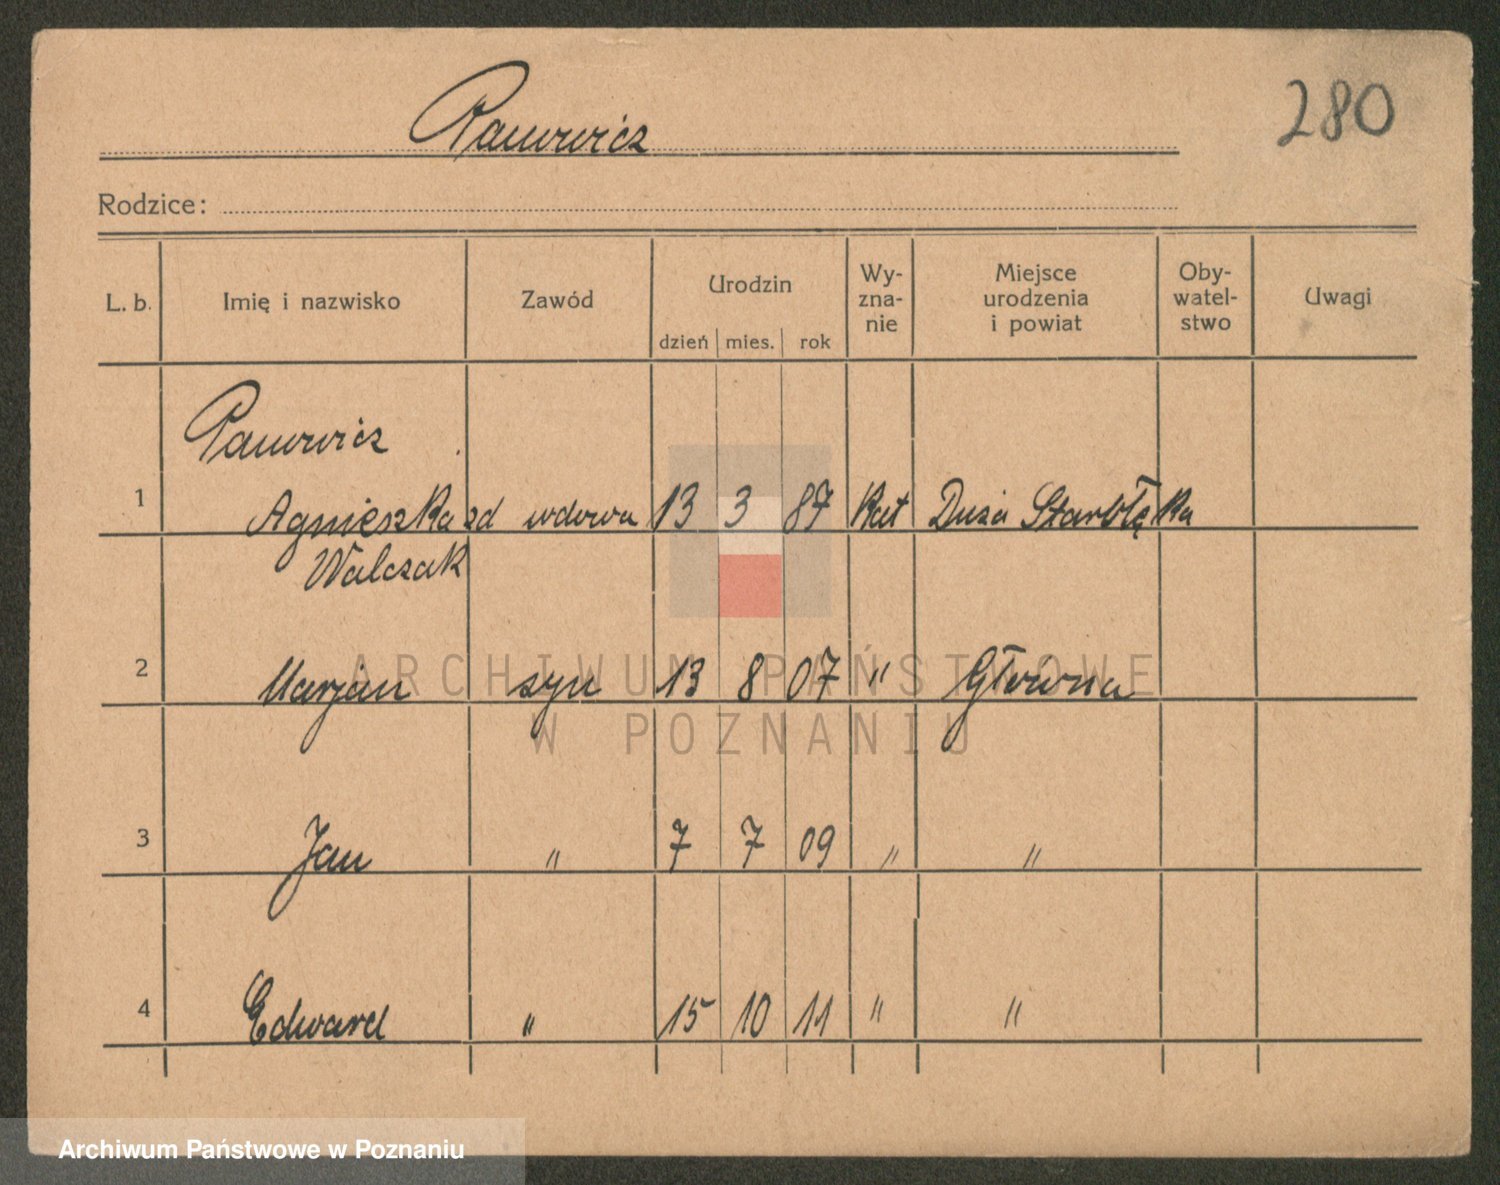 280
Panowicz
Rodzice:
L. b. Imię i nazwisko Zawód Urodzin dzień mies. rok Wy-zna-nie Miejsce urodzenia i powiat Oby-watel-stwo Uwagi
Panowicz
1 Agnieszka zd wdowa 13 3 87 Kat Duża Starołęka
Walczak
2 Marjan syn 13 8 07 " Główna
3 Jan " 7 7 09 " "
4 Edward " 15 10 11 " "
ARCHIWUM PAŃSTWOWE
W POZNANIU
Archiwum Państwowe w Poznaniu